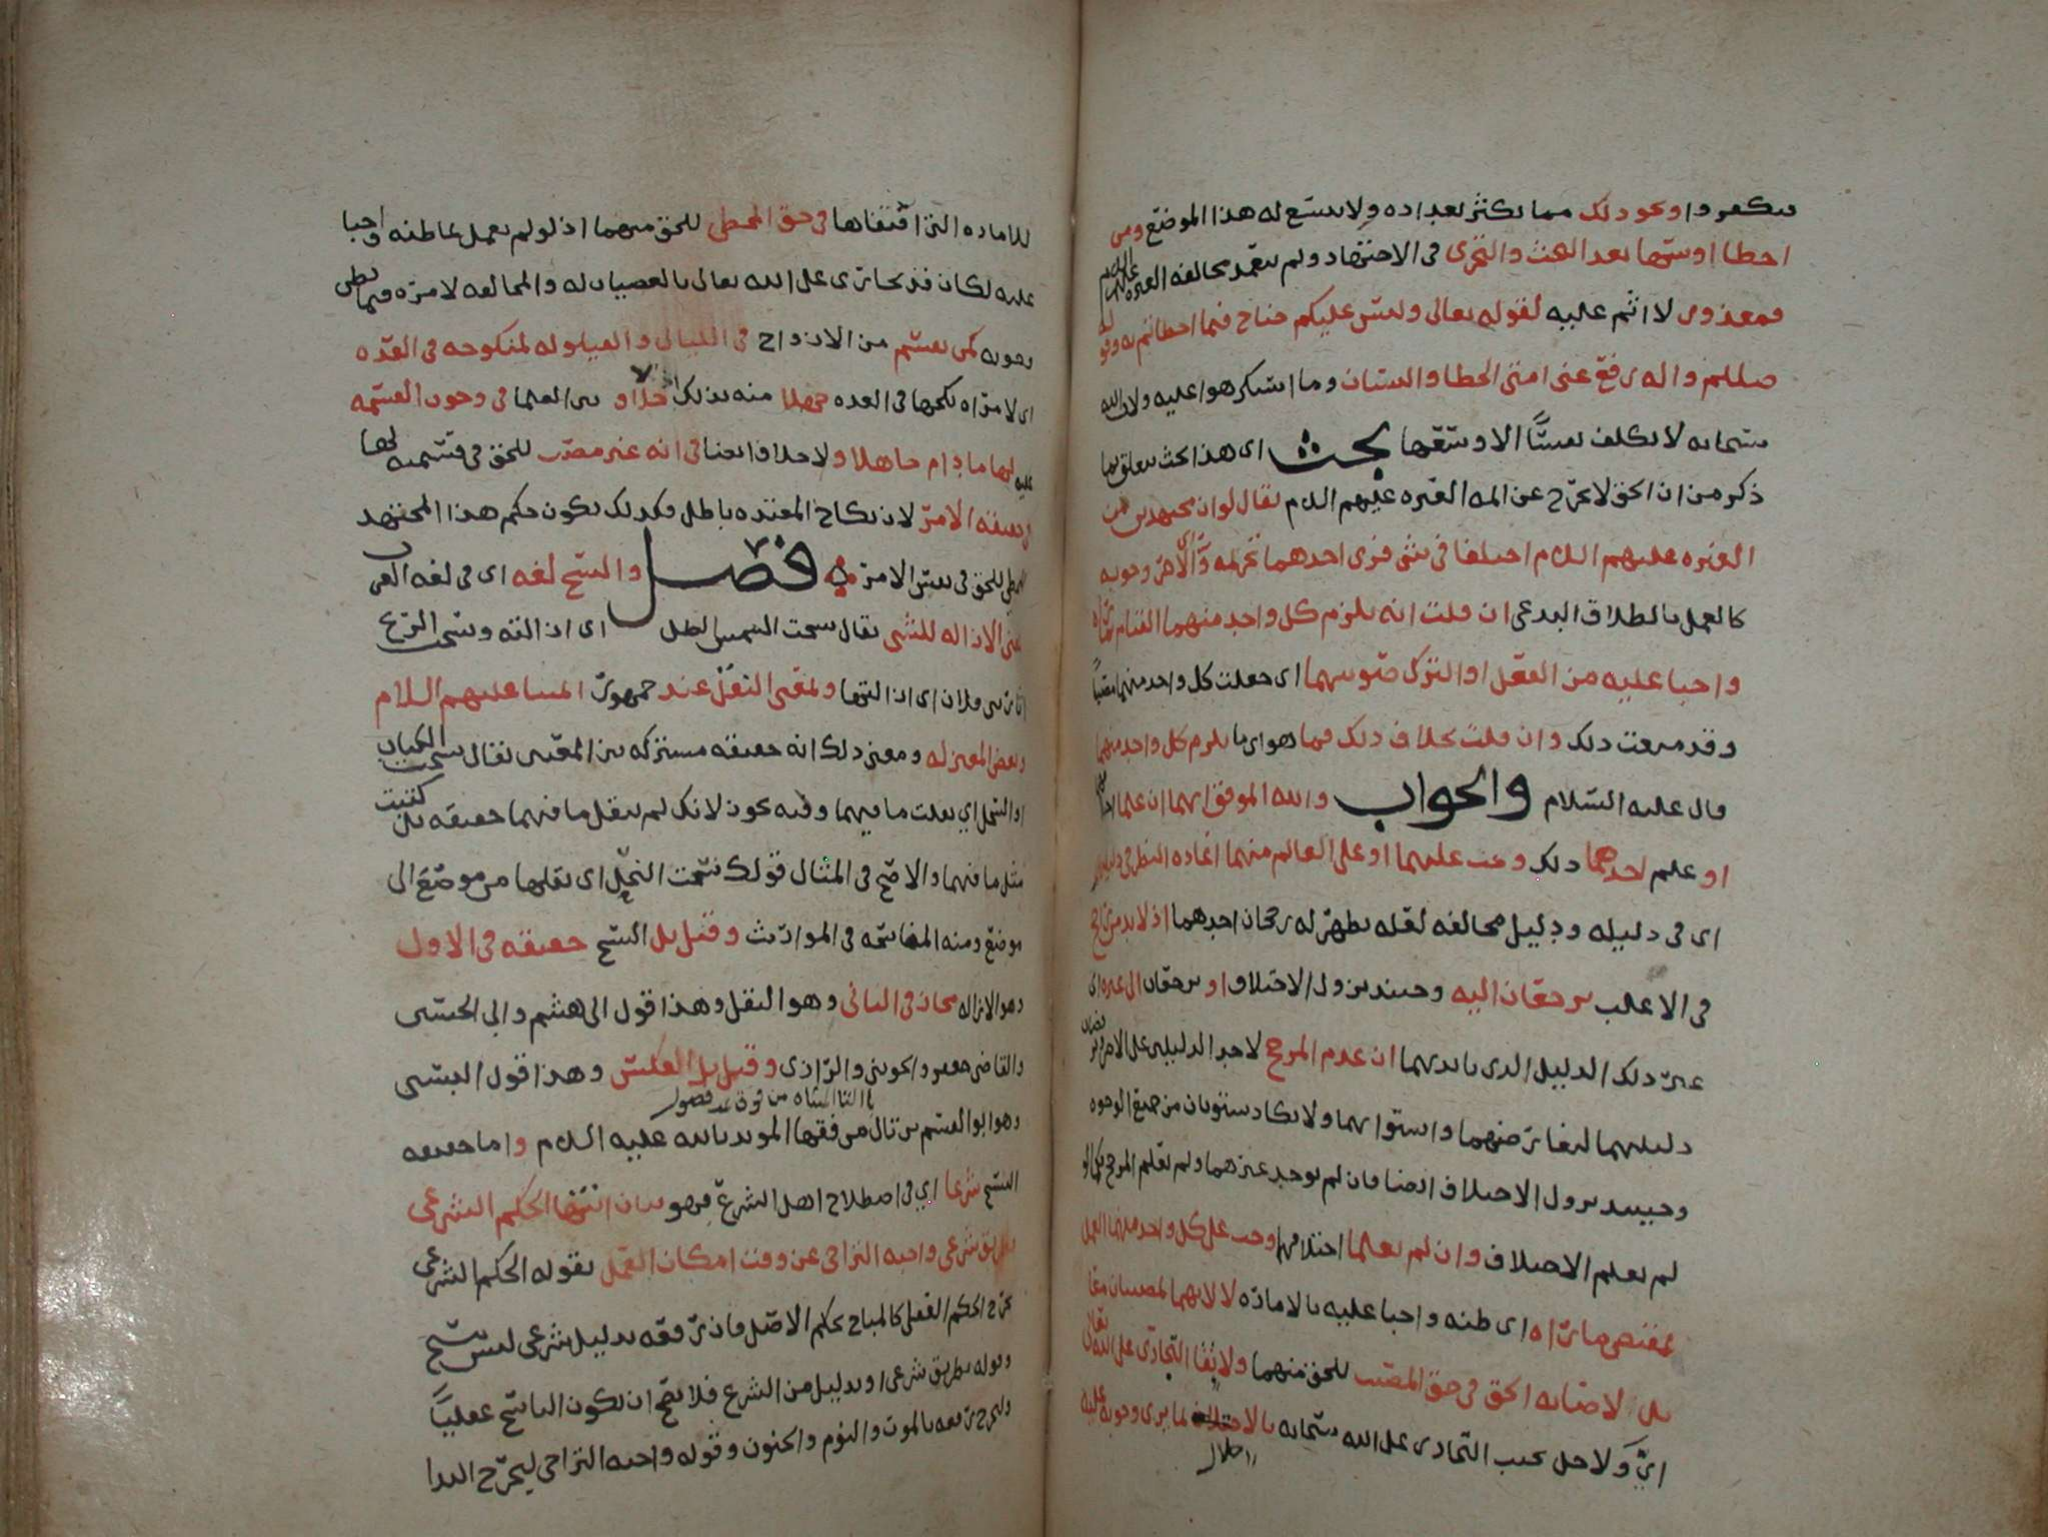 سكفروا ونحو ذلك مما يكثر تعداده ولا يتسع له هذا الموضع ومن
اخطا اوسها بعد البحث والتحري في الاجتهاد ولم يتعمد مخالفة العترة عليهم السلام
فمعذور لا اثم عليه لقوله تعالى وليس عليكم جناح فيما اخطاتم به وقوله
صللم واله رفع عن امتي الخطا والنسيان وما استكرهوا عليه ولان الله
سبحانه لا يكلف نفسًا الا وسعها بحث اي هذا بحث يتعلق بما
ذكر من ان الحق لا يخرج عن ايمة العتره عليهم السلام يقال لو ان مجتهدين من
العتره عليهم السلام اختلفا في شي فرى احدهما تحريمه وراى الاخر وجوبه
كالعمل بالطلاق البدعي ان قلت انه يلزم كل واحد منهما القيام بما يراه
واجبا عليه من الفعل او الترك صوبتهما اي جعلت كل واحد منهما مصيبًا
وقد منعت ذلك وان قلت بخلاف ذلك فما هو اي ما يلزم كل واحد منهما
قال عليه السلام والجواب والله الموفق انهما ان علما اختلافهما
او علم احدهما ذلك وجب عليهما او على العالم منهما اعاده النظر في دليله
اي في دليله ودليل مخالفه لعله يظهر له رجحان احدهما اذ لا بد من راجح
في الاغلب يرجعان اليه وحينئذ يزول الاختلاف او يرجعان الى غيره اي
غير ذلك الدليل الذي بايديهما ان عدم المرجح لاحد الدليلين على الاخر
دليليهما لتعارضهما واستوايهما ولا يكاد يستويان من جميع الوجوه
وحينئذ يزول الاختلاف ايضا فان لم يوجد غيرهما ولم يعلم المرجح
لم يعلم الاختلاف وان لم يعلما اختلافهما وجب على كل واحد منهما العمل
بمقتضى ما رآه اي ظنه واجبا عليه بالاماره لا لانهما مصيبان معا
بل لاصابه الحق في حق المصيب للحق منهما ولابقا التجاري على الله تعالى
اي ولاجل تجنب التجاري على الله سبحانه بالاخلال بما يرى وجوبه عليه
اخلال
للاماره التي اقتفاها في حق المخطي للحق منهما اذ لو لم يعمل بما ظنه واجبا
عليه لكان قد تجارى على الله تعالى بالعصيان له والمخالفه لامره فيما يظن
وجوبه كمن يقسم من الازواج في الليالي والقيلوله لمنكوحه في العده
اي لامراه نكحها في العده جهلا منه بذلك لا خلاف بين العلما في وجوب القسمه
عليه لها ما دام جاهلا ولا خلاف ايضا في انه غير مصيب للحق في قسمته لها
في نفس الامر لان نكاح المعتده باطل وكذلك يكون حكم هذا المجتهد
المخطي للحق في نفس الامر فصل والنسخ لغه اي في لغه العرب
بمعنى الازاله للشي يقال نسخت الشمس الظل اي ازالته ونسخت الريح
اثار بني فلان اي ازالتها وبمعنى النقل عند جمهور ايمتنا عليهم السلام
وبعض المعتزله ومعنى ذلك انه حقيقه مشتركه بين المعنيين يقال نسخت الكتاب
او النحل اي نقلت ما فيهما وفيه تجوز لانك لم تنقل ما فيهما حقيقه بل كتبت
مثل ما فيهما والاصح في المثال قولك نسخت النحل اي نقلها من موضع الى
موضع ومنه المناسخه في المواريث وقيل بل النسخ حقيقه في الاول
وهو الازاله مجاز في الثاني وهو النقل وهذا قول ابي هشم وابي الحسين
والقاضي جعفر والجويني والرازي وقيل بل العكس وهذا قول البستي
بالتا المثناه من فوق عد فصول
وهو ابو القسم بن تال من فقها المويد بالله عليه السلام واما حقيقه
النسخ شرعا اي في اصطلاح اهل الشرع فهو بيان انتها الحكم الشرعي
بطريق شرعي واجبه التراخي عن وقت امكان العمل بقوله الحكم الشرعي
يخرج الحكم العقلي كالمباح بحكم الاصل فان رفعه بدليل شرعي ليس بنسخ
وقوله بطريق شرعي اي بدليل من الشرع فلا يصح ان يكون الناسخ عقليًا
وليخرج رفعه بالموت والنوم والجنون وقوله واجبه التراخي ليخرج البدا